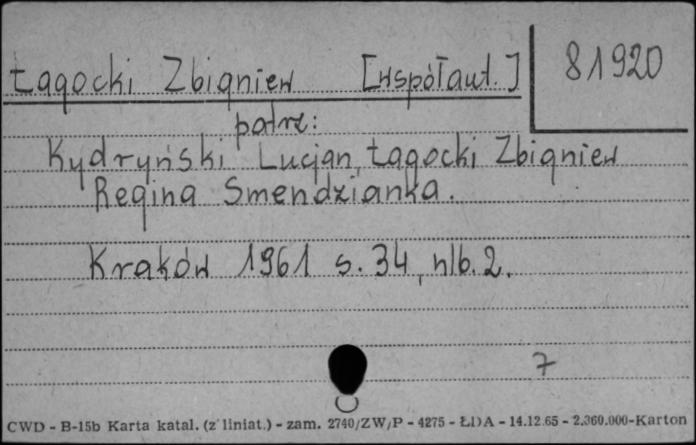 Łagocki Zbigniew [współaut.] 81920
patrz:
Kydryński Lucjan, Łagocki Zbigniew
Regina Smendzianka.
Kraków 1961 s. 34, nlb. 2.
7
CWD - B-15b Karta katal. (z liniat.) - zam. 2740/ZW/P - 4275 - ŁDA - 14.12.65 - 2.360.000-Karton